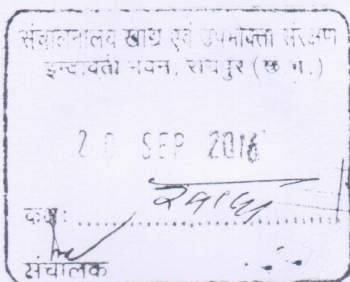 संचालनालय खाद्य एवं उपभोक्ता संरक्षण
इन्द्रावती भवन, रायपुर (छ.ग.)
20 SEP 2016
संचालक